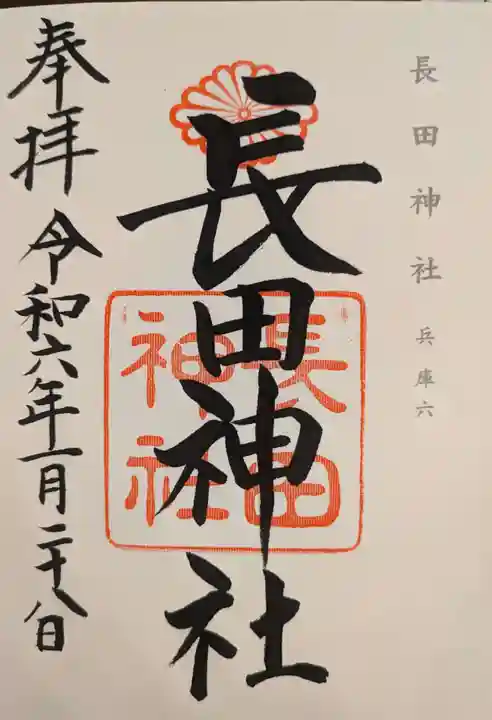 長田神社 兵庫六
長田神社
長田
神社
奉拝
令和六年一月二十八日